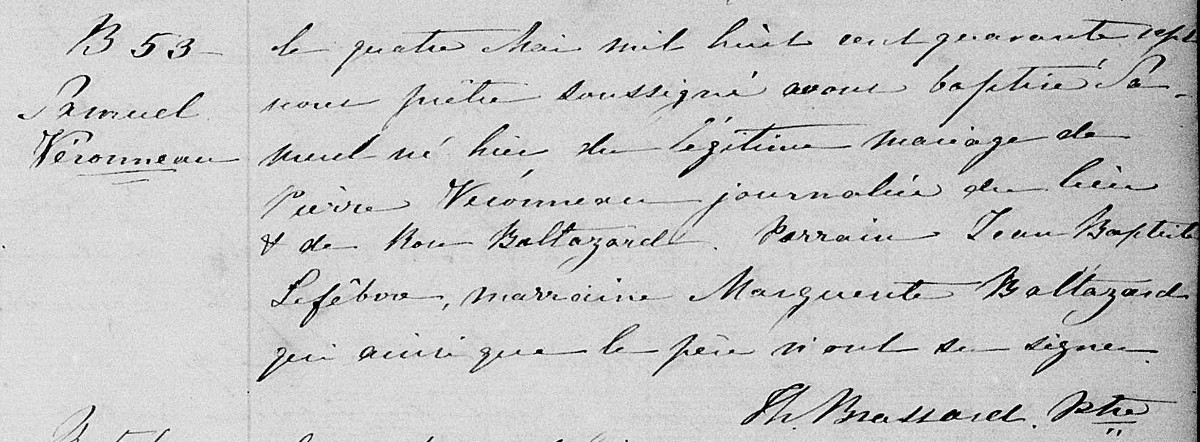 B 53
Samuel
Véronneau
le quatre Mai mil huit cent quarante sept
nous prêtre soussigné avons baptisé Sa-
muel né hier du légitime mariage de
Pierre Véronneau journalier du lieu
& de Rose Baltazard. Parrain Jean Baptiste
Lefêbvre, marraine Marguerite Baltazard
qui ainsi que le père n'ont su signer.
Th. Brassard. Ptre